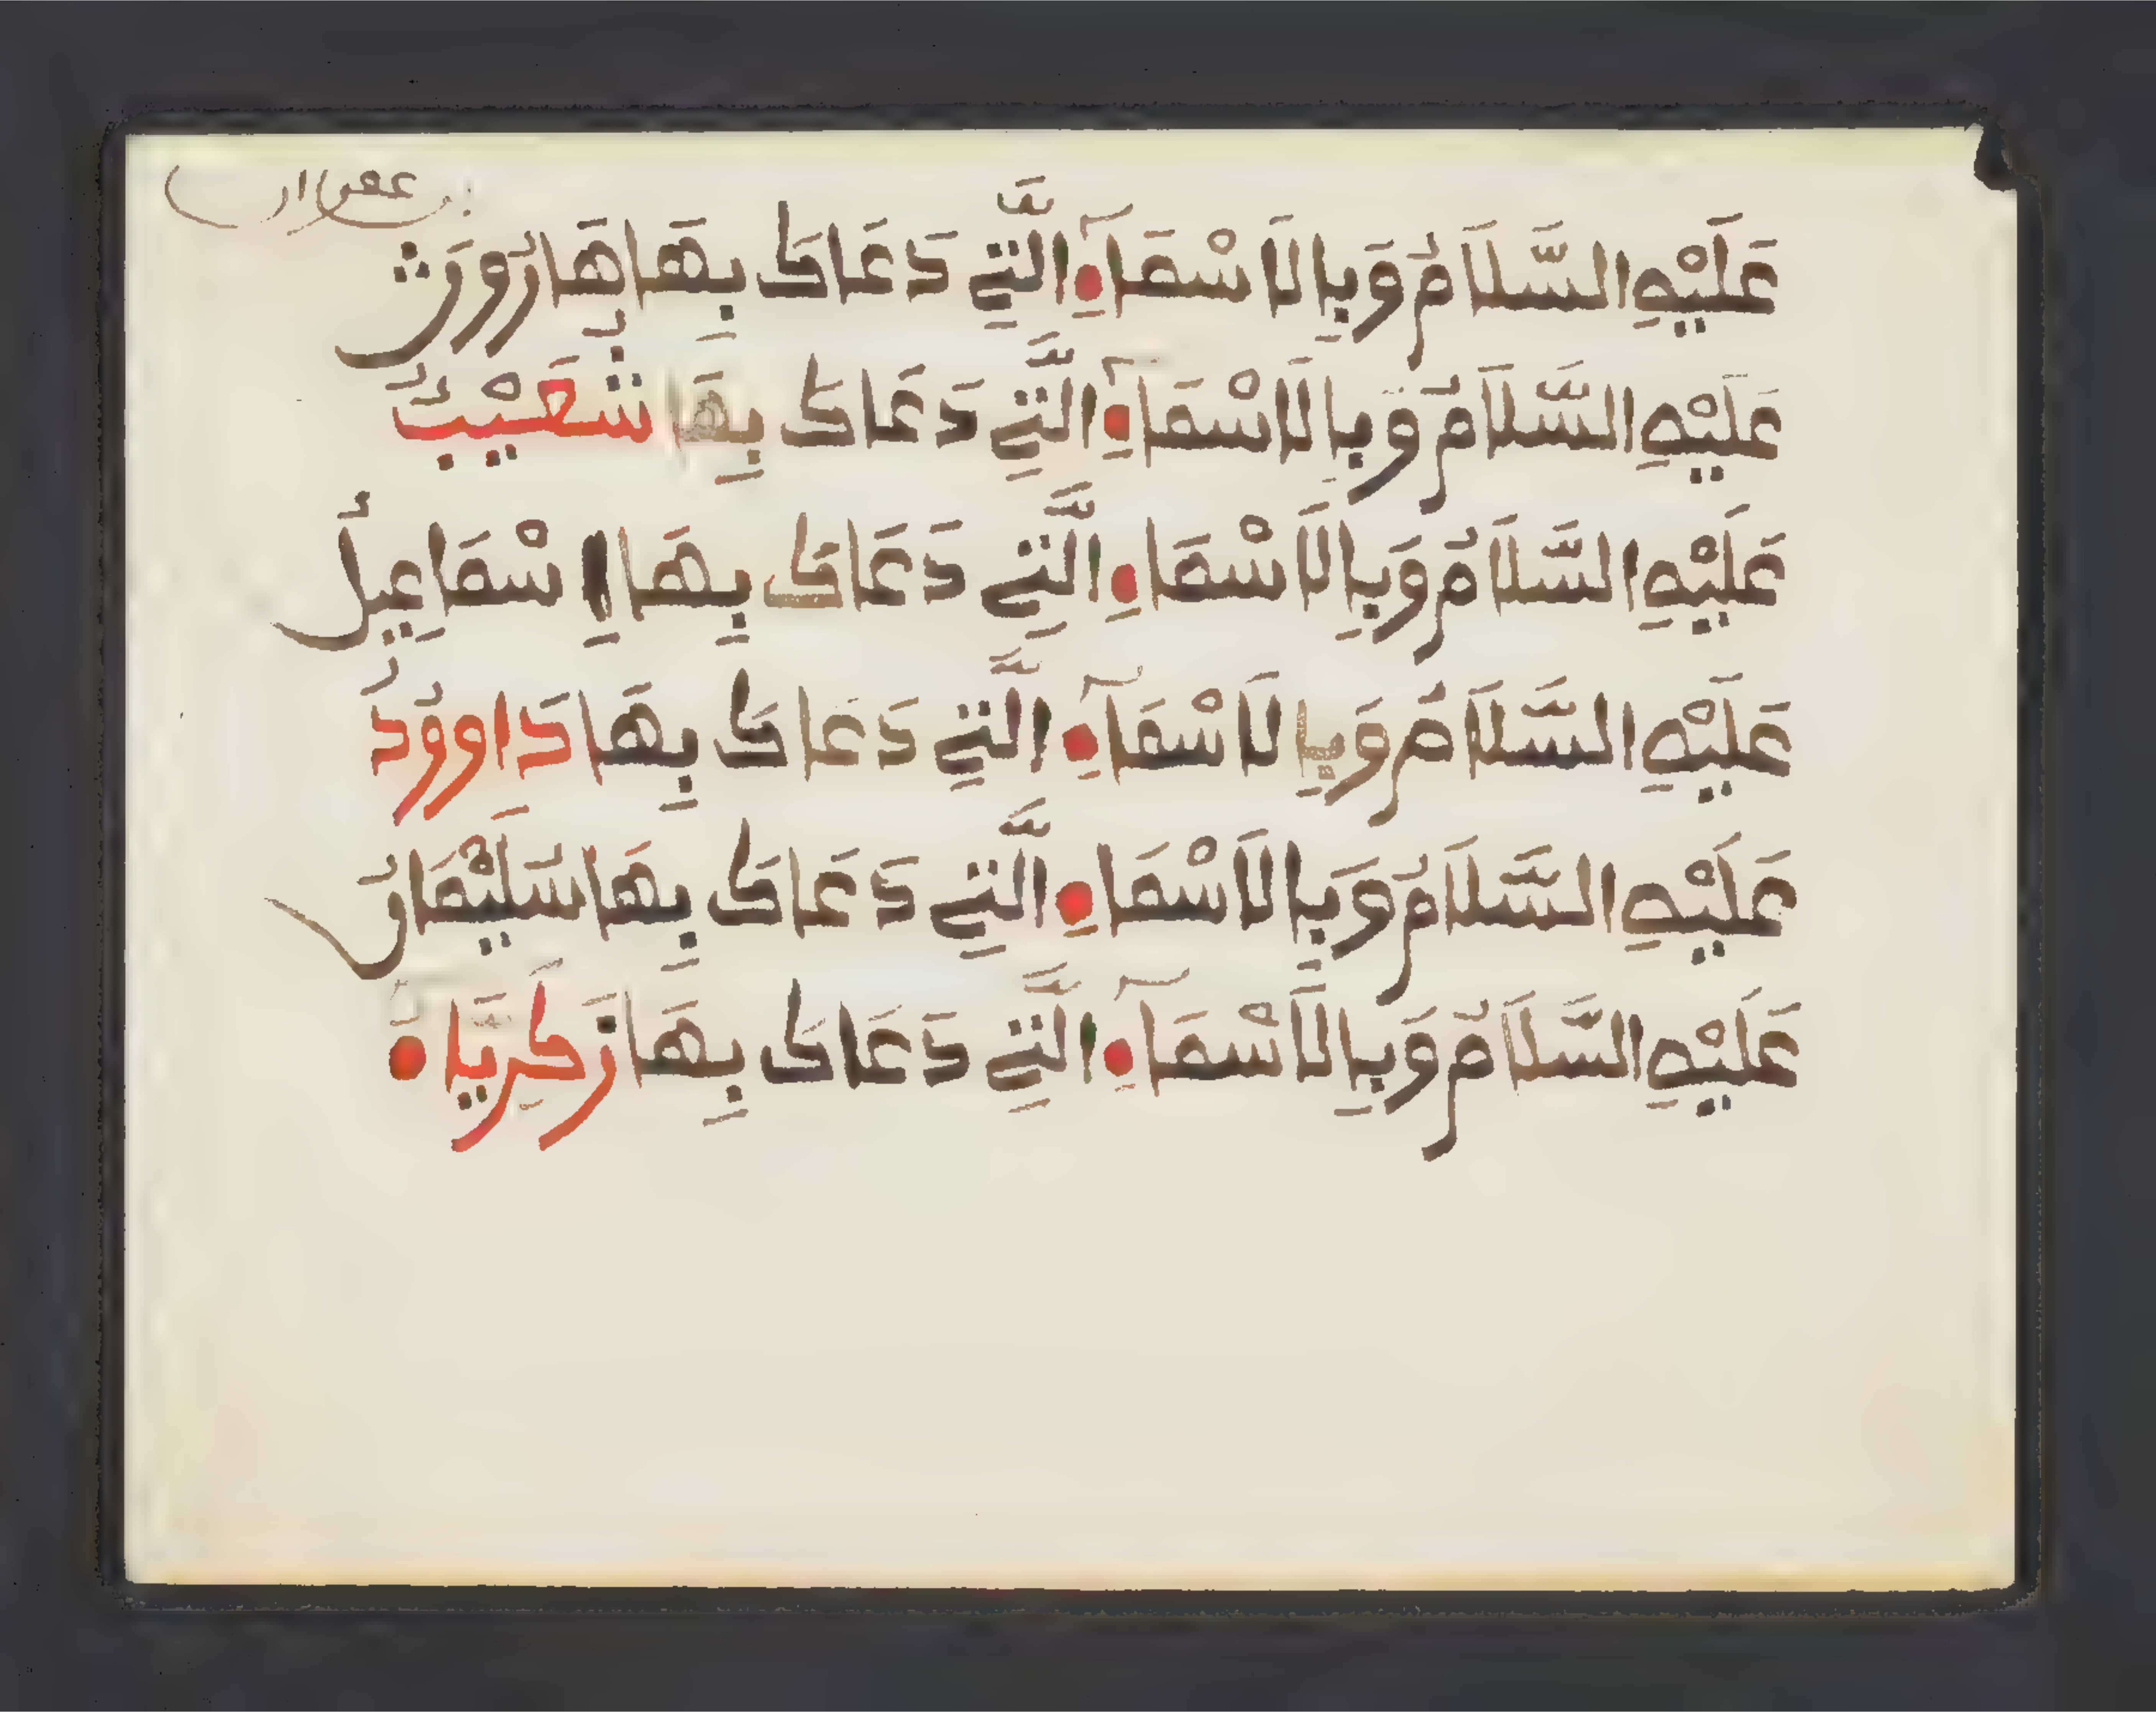 عَلَيْهِ السَّلَامُ وَبِالَاسْمَآءِ الَّتِي دَعَاكَ بِهَا هَارُونَ
عَلَيْهِ السَّلَامُ وَبِالَاسْمَآءِ الَّتِي دَعَاكَ بِهَا شُعَيْبٌ
عَلَيْهِ السَّلَامُ وَبِالَاسْمَاءِ الَّتِي دَعَاكَ بِهَا إِسْمَاعِيلُ
عَلَيْهِ السَّلَامُ وَبِالَاسْمَآءِ الَّتِي دَعَاكَ بِهَا دَاوُودُ
عَلَيْهِ السَّلَامُ وَبِالَاسْمَاءِ الَّتِي دَعَاكَ بِهَا سُلَيْمَانُ
عَلَيْهِ السَّلَامُ وَبِالَاسْمَآءِ الَّتِي دَعَاكَ بِهَا زَكَرِيَّاءُ